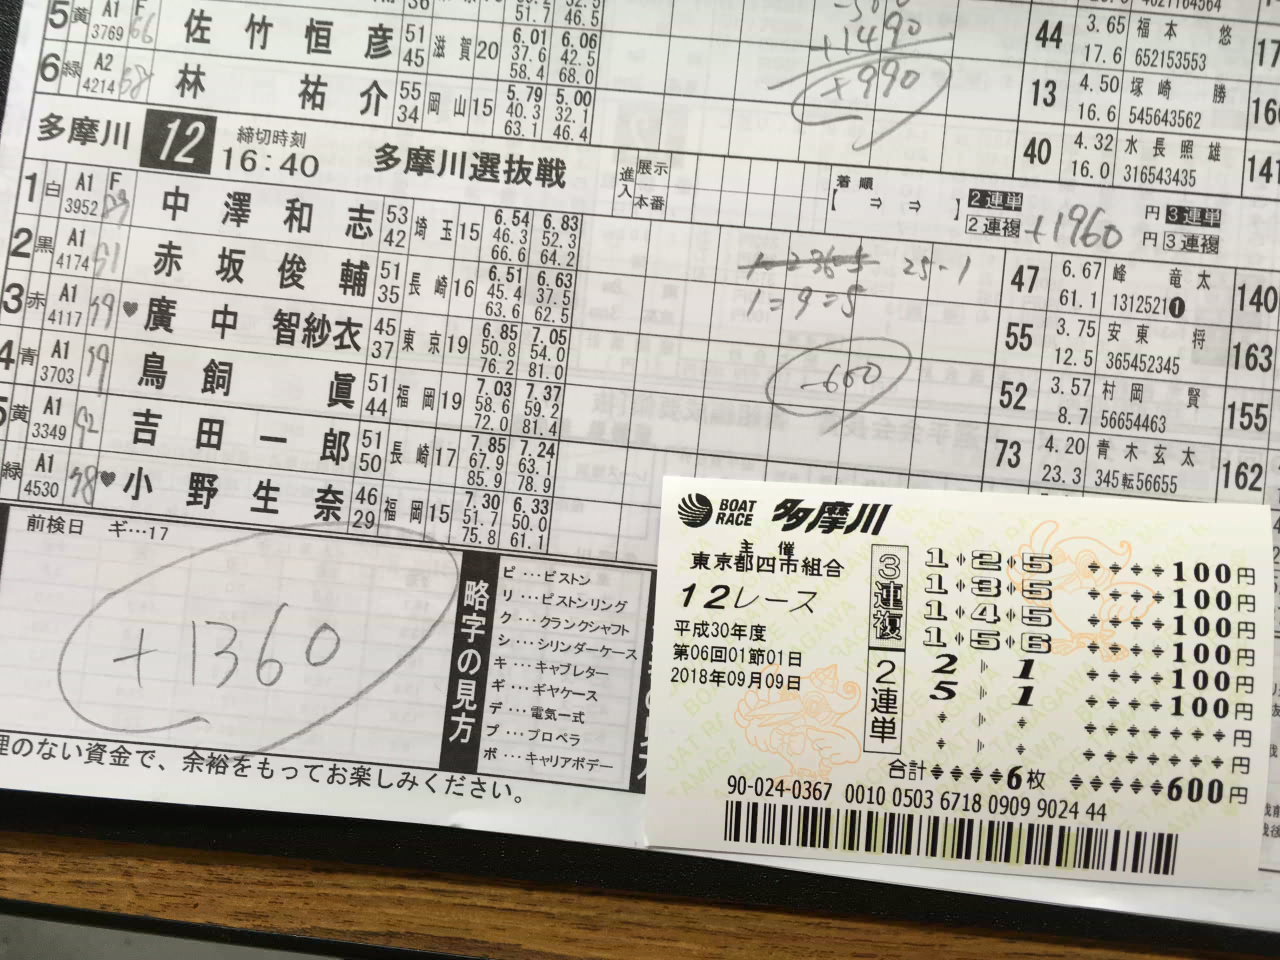 5 黄 A1 F 3769 66 佐竹恒彦 51 45 滋賀 20 6.01 37.6 58.4 6.06 42.5 68.0
6 緑 A2 4214 68 林祐介 55 34 岡山 15 5.79 40.3 63.1 5.00 32.1 46.4
+1490
+990
44 3.65 17.6 福本悠 652153553
13 4.50 16.6 塚崎勝 545643562
40 4.32 16.0 水長照雄 316543435 141
多摩川 12 締切時刻 16:40 多摩川選抜戦
進入 展示 本番
着順 [ ⇒ ⇒ ]
2連単 円 3連単
2連複 円 3連複
+1960
1 白 A1 F 3952 中澤和志 53 42 埼玉 15 6.54 46.3 66.6 6.83 52.3 64.2
2 黒 A1 4174 51 赤坂俊輔 51 35 長崎 16 6.51 45.4 63.6 6.63 37.5 62.5
3 赤 A1 4117 59 ♥ 廣中智紗衣 45 37 東京 19 6.85 50.8 76.2 7.05 54.0 81.0
4 青 A1 3703 59 鳥飼眞 51 44 福岡 19 7.03 58.6 72.0 7.37 59.2 81.4
5 黄 A1 3349 92 吉田一郎 51 50 長崎 17 7.85 67.9 85.9 7.24 63.1 78.9
緑 A1 4530 58 ♥ 小野生奈 46 29 福岡 15 7.30 51.7 75.8 6.33 50.0 61.1
25-1
1=9=5
-600
47 6.67 61.1 峰竜太 1312521❶ 140
55 3.75 12.5 安東将 365452345 163
52 3.57 8.7 村岡賢 56654463 155
73 4.20 23.3 青木玄太 345転56655 162
前検日 ギ…17
+1360
略字の見方
ピ…ピストン
リ…ピストンリング
ク…クランクシャフト
シ…シリンダーケース
キ…キャブレター
ギ…ギヤケース
デ…電気一式
プ…プロペラ
ボ…キャリアボデー
理のない資金で、余裕をもってお楽しみください。
BOAT RACE 多摩川
主催
東京都四市組合
12レース
平成30年度
第06回01節01日
2018年09月09日
3連複
1 2 5 100円
1 3 5 100円
1 4 5 100円
1 5 6 100円
2連単
2 1 100円
5 1 100円
円
円
合計 6枚 600円
90-024-0367 0010 0503 6718 0909 9024 44